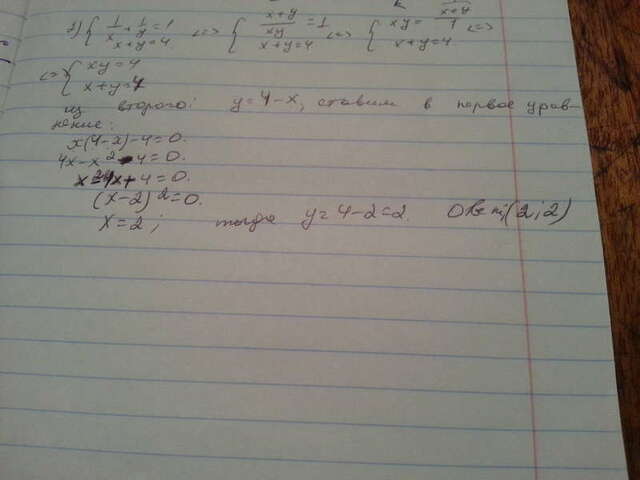 { 1/x + 1/y = 1 <=> { (x+y)/(xy) = 1 <=> { xy = (x+y)/1 <=>
x+y=4 x+y=4 x+y=4
<=> { xy=4
x+y=4
из второго: y=4-x, ставим в первое урав-
нение:
x(4-x)-4=0.
4x-x²-4=0.
x²-4x+4=0.
(x-2)²=0.
x=2; тогда y=4-2=2. Ответ: (2;2)